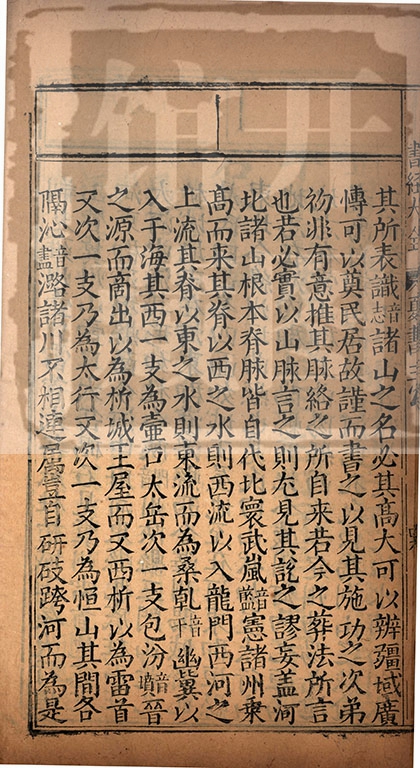 其所表識音志諸山之名必其髙大可以辨疆域廣
愽可以奠民居故謹而書之以見其施功之次第
初非有意推其脉絡之所自来若今之葬法所言
也若必實以山脉言之則尤見其說之謬妄盖河
北諸山根本脊脉皆自代北寰武嵐音藍憲諸州乗
髙而来其脊以西之水則西流以入龍門西河之
上流其脊以東之水則東流而為桑乾音干幽冀以
入于海其西一支為壷口太岳次一支包汾音墳晉
之源而南出以為析城王屋而又西折以為雷首
又次一支乃為太行又次一支乃為恒山其間各
隔沁音潞諸川不相連屬豈自岍岐跨河而為是